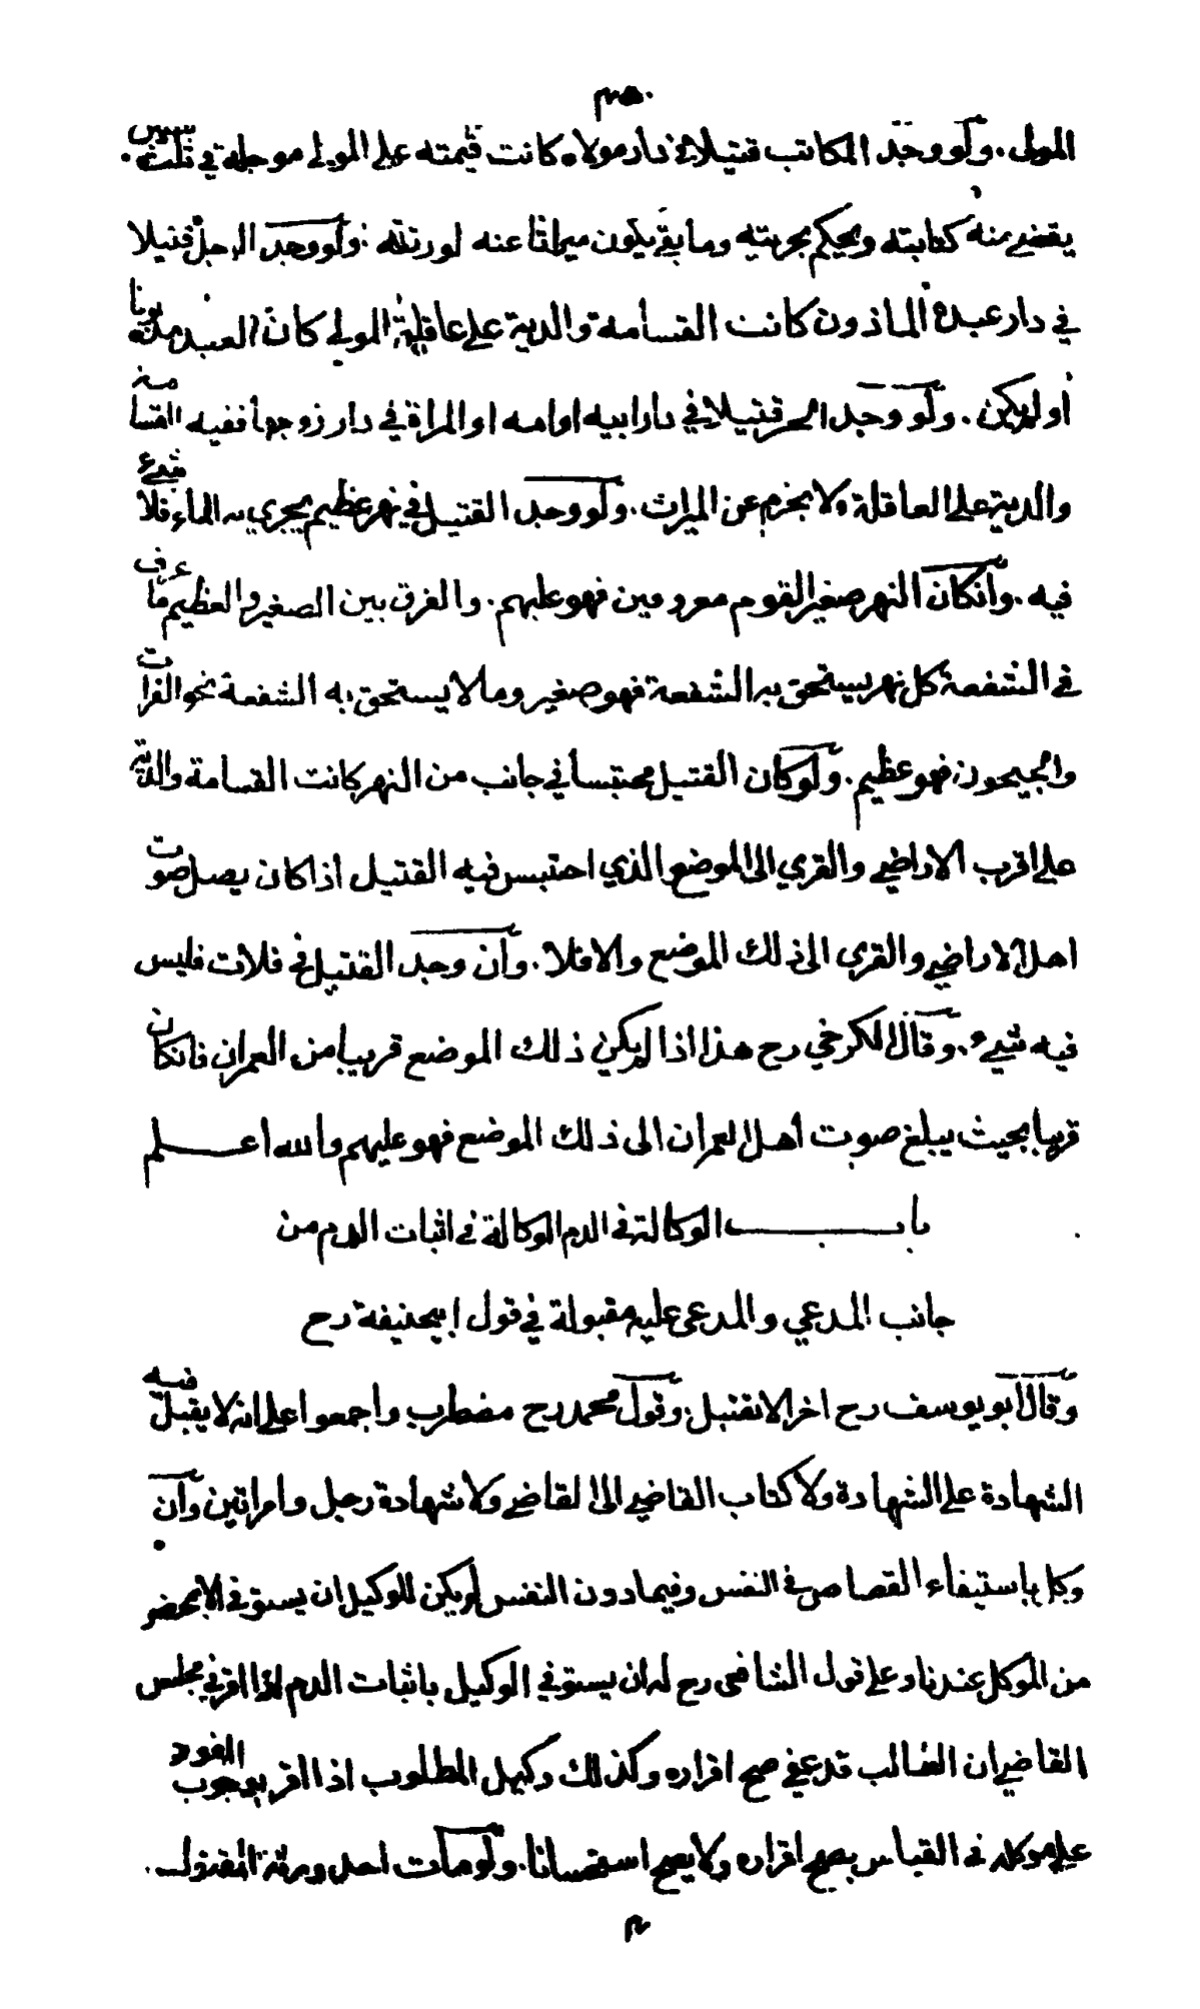 ٣٥٠
المولى. ولو وجد المكاتب قتيلا في دار مولاه كانت قيمته على المولى موجلة في ثلث سنين.
يقضى منه كتابته ويحكم بحريته وما بقي يكون ميراثا عنه لورثته. ولو وجد الرجل قتيلا
في دار عبده الماذون كانت القسامة والدية على عاقلة المولى كان العبد مديونا
او لم يكن. ولو وجد الحر قتيلا في دار ابيه او امه او المراة في دار زوجها ففيه القسامة
والدية على العاقلة ولا يحرم عن الميراث. ولو وجد القتيل في نهر عظيم يجري به الماء فلا شيء
فيه. وان كان النهر صغير القوم معروفين فهو عليهم. والفرق بين الصغير والعظيم ما عرف
في الشفعة كل نهر يستحق به الشفعة فهو صغير وما لا يستحق به الشفعة نحو الفرات
والجيحون فهو عظيم. ولو كان القتيل محتبسا في جانب من النهر كانت القسامة والدية
على اقرب الاراضي والقرى الى الموضع الذي احتبس فيه القتيل اذا كان يصل صوت
اهل الاراضي والقرى الى ذلك الموضع والا فلا. وان وجد القتيل في فلات فليس
فيه شيء. وقال الكرخي رح هذا اذا لم يكن ذلك الموضع قريبا من العمران فان كان
قريبا بحيث يبلغ صوت اهل العمران الى ذلك الموضع فهو عليهم والله اعلم
باب الوكالة في الدم الوكالة في اثبات الدم من
جانب المدعي والمدعى عليه مقبولة في قول ابي حنيفة رح
وقال ابو يوسف رح اخرا لا تقبل. وقول محمد رح مضطرب واجمعوا على انه لا يقبل فيه
الشهادة على الشهادة ولا كتاب القاضي الى القاضي ولا شهادة رجل وامراتين وان
وكل باستيفاء القصاص في النفس وفيما دون النفس لم يكن للوكيل ان يستوفي الا بمحضر
من الموكل عندنا وعلى قول الشافعي رح له ان يستوفي الوكيل باثبات الدم اذا اقر في مجلس
القاضي ان الطالب قد عفى صح اقراره وكذلك وكيل المطلوب اذا اقر بوجوب القود
على موكله في القياس يصح اقراره ولا يصح استحسانا. ولو مات احد ورثة المقتول.